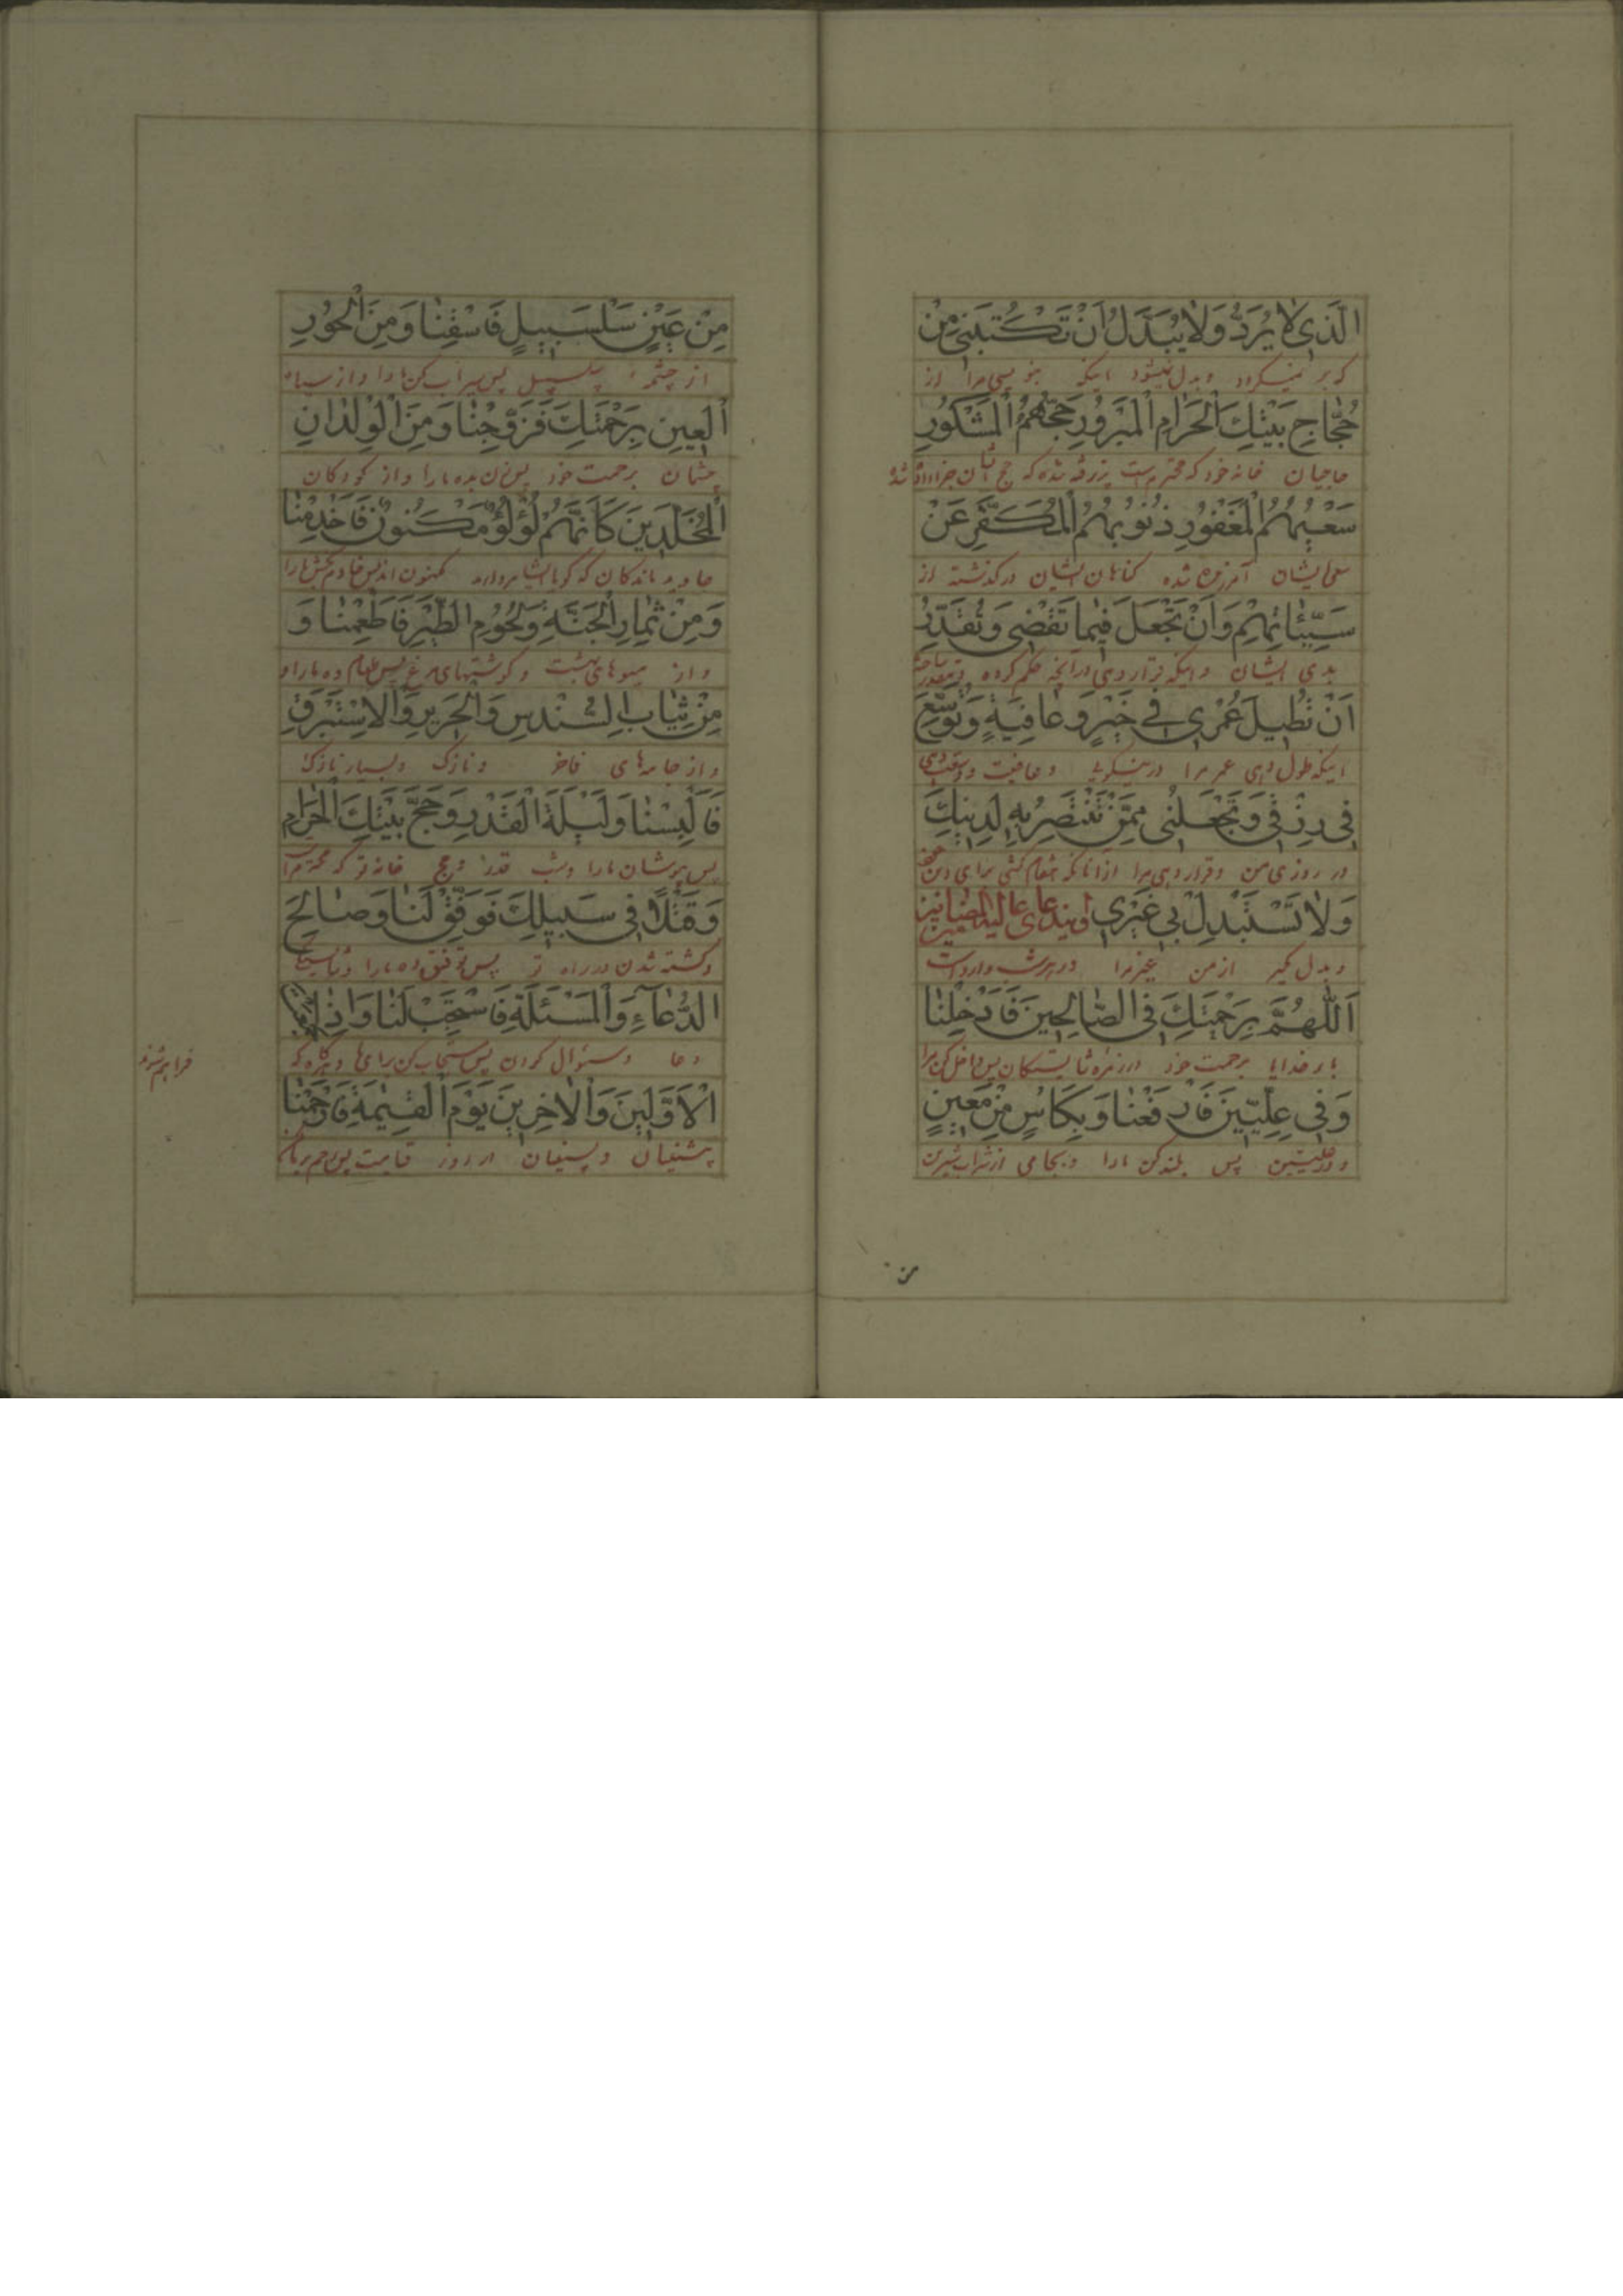 الَّذِي لَا يُرَدُّ وَلَا يُبَدَّلُ اَنْ تَكْتُبَنِي مِنْ
که بر نمیگردد و بدل نمیشود اینکه بنویسی مرا از
حُجَّاجِ بَيْتِكَ الْحَرَامِ الْمَبْرُورِ حَجُّهُمُ الْمَشْكُورِ
حاجیان خانه خود که محترم است پذیرفته شده که حج
سَعْيُهُمُ الْمَغْفُورِ ذُنُوبُهُمُ الْمُكَفَّرِ عَنْ
سعی ایشان آمرزیده شده گناهان ایشان درگذشته از
سَيِّئَاتِهِمْ وَاَنْ تَجْعَلَ فِيمَا تَقْضِي وَتُقَدِّرُ
بدی ایشان و اینکه قرار دهی در آنچه حکم کرده
اَنْ تُطِيلَ عُمْرِي فِي خَيْرٍ وَعَافِيَةٍ وَتُوَسِّعَ
اینکه طول دهی عمر مرا در نیکویی و عافیت و وسعت دهی
فِي رِزْقِي وَتَجْعَلَنِي مِمَّنْ تَنْتَصِرُ بِهِ لِدِينِكَ
در روزی من و قرار دهی مرا از آنانکه انتقام کشی برای دین
وَلَا تَسْتَبْدِلْ بِي غَيْرِي
و بدل مگیر از من غیر مرا در هر شب وارد است
اَللّٰهُمَّ بِرَحْمَتِكَ فِي الصَّالِحِينَ فَاَدْخِلْنَا
بار خدایا برحمت خود در زمره شایستگان پس داخل کن مرا
وَفِي عِلِّيِّينَ فَارْفَعْنَا وَبِكَاْسٍ مِنْ مَعِينٍ
و در علیین پس بلند کن ما را و بجامی از شراب شیرین
من
مِنْ عَيْنٍ سَلْسَبِيلٍ فَاسْقِنَا وَمِنَ الْحُورِ
از چشمه سلسبیل پس سیراب کن ما را و از سیاه
الْعِينِ بِرَحْمَتِكَ فَزَوِّجْنَا وَمِنَ الْوِلْدَانِ
چشمان برحمت خود پس زن بده ما را و از کودکان
الْمُخَلَّدِينَ كَاَنَّهُمْ لُؤْلُؤٌ مَكْنُونٌ فَاَخْدِمْنَا
جاوید ماندگان که گویا ایشان مروارید مکنون اند پس خادم بخش ما را
وَمِنْ ثِمَارِ الْجَنَّةِ وَلُحُومِ الطَّيْرِ فَاَطْعِمْنَا وَ
و از میوهای بهشت و گوشتهای مرغ پس طعام ده ما را و
مِنْ ثِيَابِ السُّنْدُسِ وَالْحَرِيرِ وَالْاِسْتَبْرَقِ
و از جامهای فاخر و نازک و بسیار نازک
فَاَلْبِسْنَا وَلَيْلَةَ الْقَدْرِ وَحَجَّ بَيْتِكَ الْحَرَامِ
پس بپوشان ما را و شب قدر و حج خانه تو که محترم است
وَقَتْلًا فِي سَبِيلِكَ فَوَفِّقْ لَنَا وَصَالِحَ
و کشته شدن در راه تو پس توفیق ده ما را
الدُّعَاۤءِ وَالْمَسْئَلَةِ فَاسْتَجِبْ لَنَا وَاِذَا
دعا و سئوال کردن پس مستجاب کن برای ما و هرگاه که
فراهم شوند
الْاَوَّلِينَ وَالْاٰخِرِينَ يَوْمَ الْقِيٰمَةِ فَارْحَمْنَا
پیشینیان و پسینیان در روز قیامت پس رحم